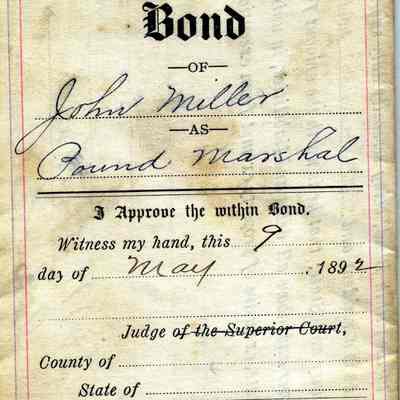 Bond
—OF—
John Miller
—AS—
Pound Marshal
I Approve the within Bond.
Witness my hand, this 9
day of May, 1892
Judge of the Superior Court,
County of
State of